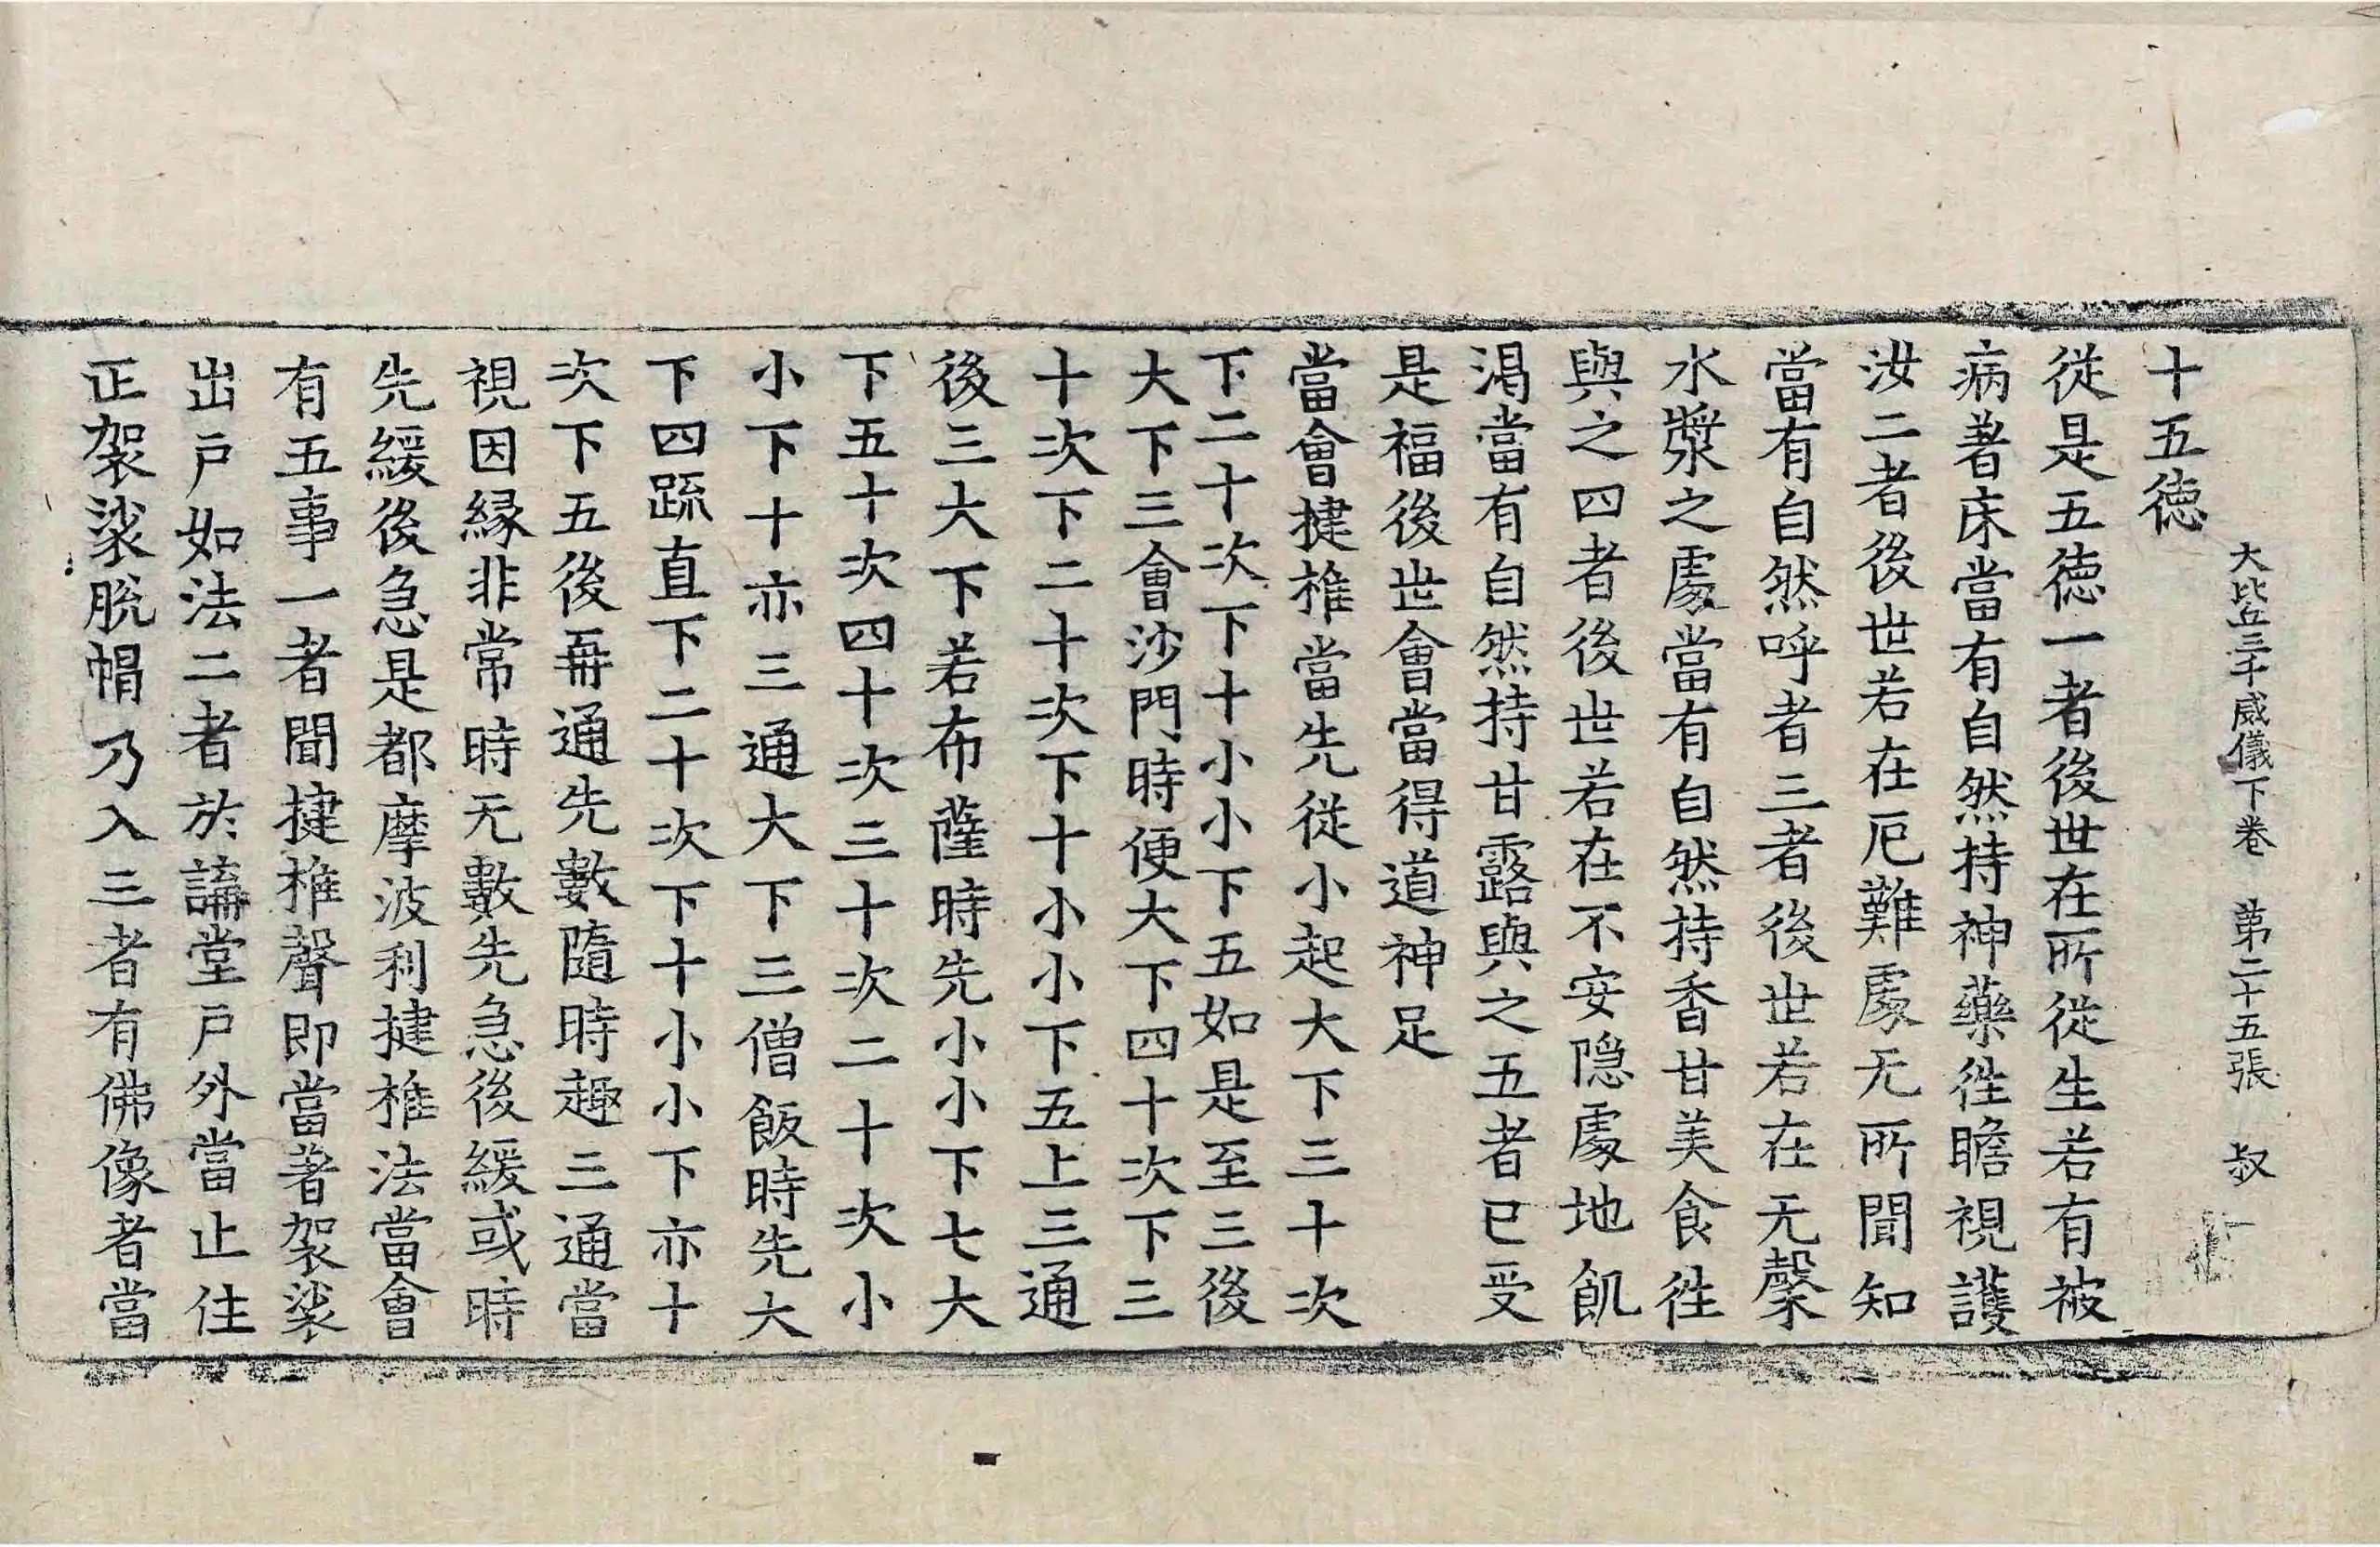 大比丘三千威儀下卷 第二十五張 叔
十五徳
從是五徳一者後世在所從生若有被
病著床當有自然持神藥徃瞻視護
汝二者後世若在厄難處无所聞知
當有自然呼者三者後世若在无漿
水漿之處當有自然持香甘美食徃
與之四者後世若在不安隠處地飢
渇當有自然持甘露與之五者已受
是福後世會當得道神足
當會揵椎當先從小起大下三十次
下二十次下十小小下五如是至三後
大下三會沙門時便大下四十次下三
十次下二十次下十小小下五上三通
後三大下若布薩時先小小下七大
下五十次四十次三十次二十次小
小下十亦三通大下三僧飯時先大
下四䟽直下二十次下十小小下亦十
次下五後再通先數隨時趣三通當
視因縁非常時无數先急後緩或時
先緩後急是都摩波利揵椎法當會
有五事一者聞揵椎聲即當著袈裟
出戸如法二者於講堂戸外當止住
正袈裟脫帽乃入三者有佛像者當